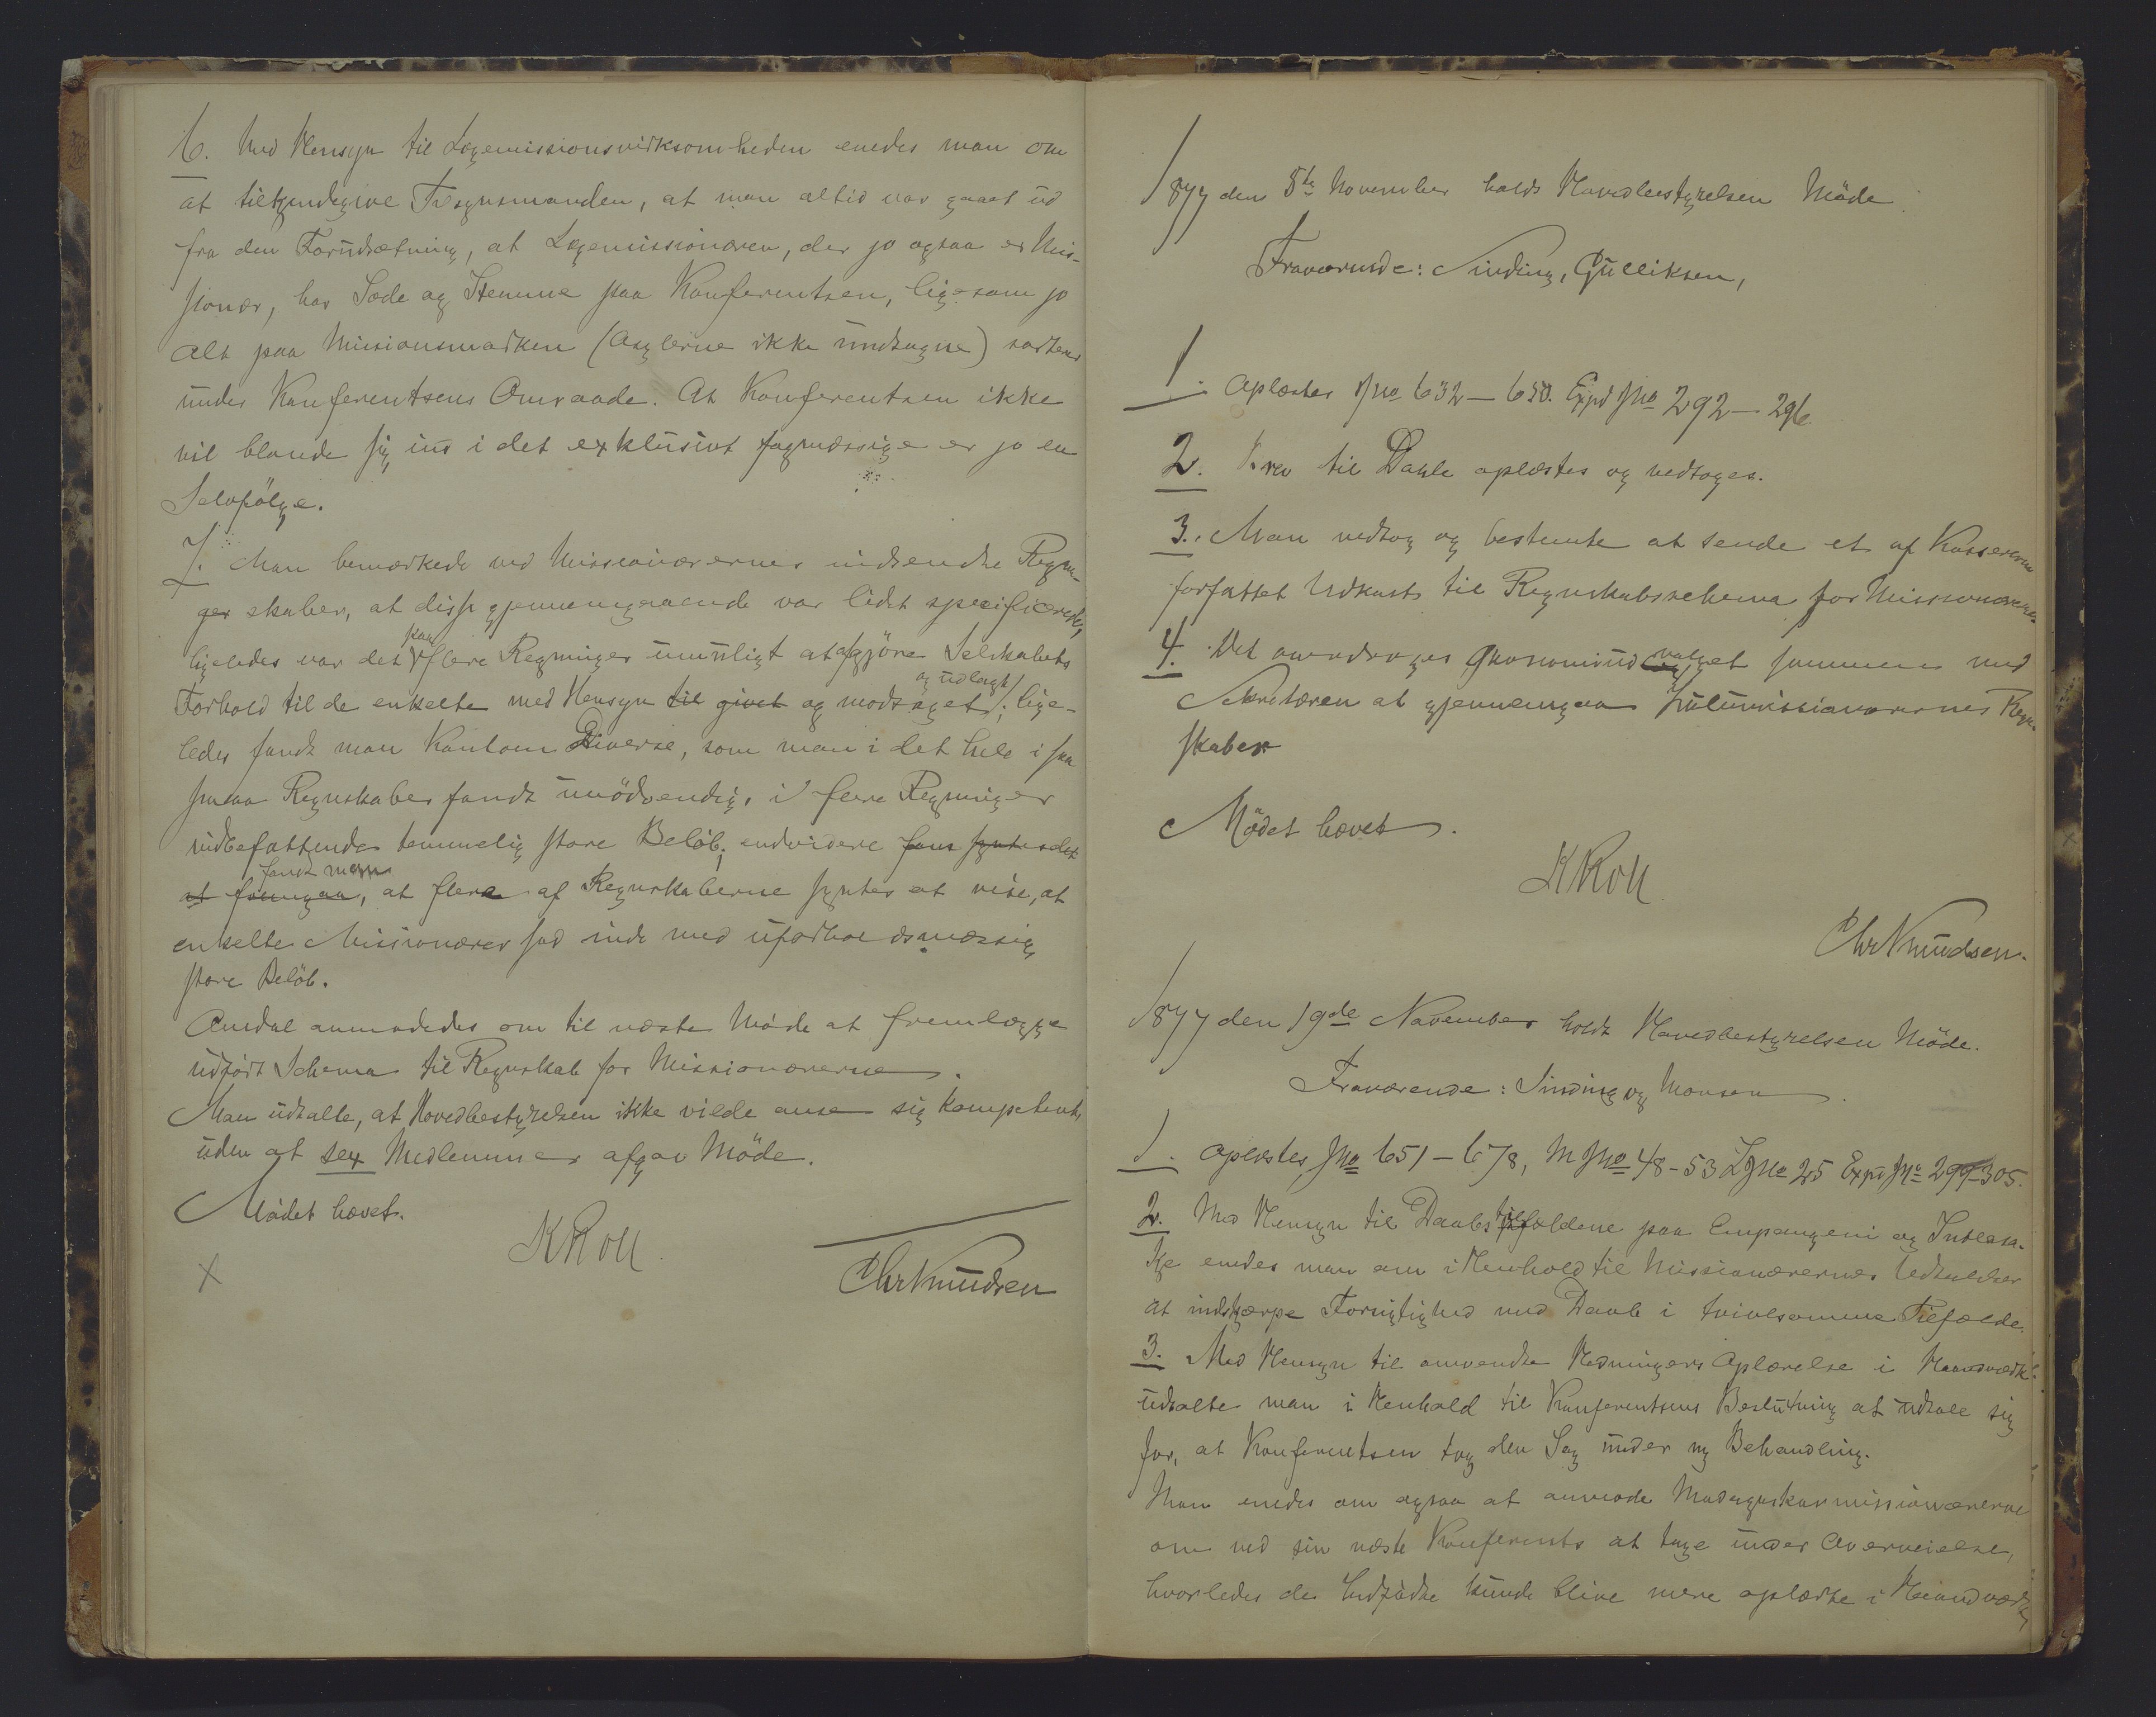 6. Med Hensyn til Lægemissionsvirksomheden enedes man om
at tilkjendegive Tilsynsmanden, at man altid var gaaet ud
fra den Forudsætning, at Lægemissionæren, der jo ogsaa er Mis-
sionær, har Sæde og Stemme paa Konferentsen, ligesom jo
alt paa Missionsmarken (Asylerne ikke undtagne) sorterer
under Konferentsens Omraade. At Konferentsen ikke
vil blande sig ind i det exklusivt fagmæssige er jo en
Selvfölge.
7. Man bemærkede ved Missionærernes indsendte Regn-
skaber, at disse gjennemgaaende var lidet specificerede,
ligeledes var det paa flere Regninger umuligt at afgjöre Selskabets
Forhold til de enkelte med Hensyn til givet og modtaget og udlagt; lige-
ledes fandt man Kontoen Diverse, som man i det hele i saa
smaa Regnskaber fandt unödvendig, i flere Regninger
indbefattende temmelig store Beløb; endvidere synes det
at fremgaa, fandt man at flere af Regnskaberne syntes at vise, at
enkelte Missionærer sad inde med uforholdsmæssig
store Belöb.
anmodedes om til næste Möde at fremlægge
udfört Schema til Regnskab for Missionærerne.
Man udtalte, at Hovedbestyrelsen ikke vilde anse sig kompetent,
uden at sex Medlemmer afgav Möde.
Mödet hævet.
KRoll.
Chr Knudsen
1877 den 5te November holdt Hovedbestyrelsen Möde
Fraværende: Sinding, Gulliksen,
1. Oplæstes Jno 632 - 650. Exped Jno 292 - 296.
2. Brev til Dahle oplæstes og vedtoges.
3. Man vedtog og bestemte at sende et af Kassereren
forfattet Udkast til Regnskabsschema for Missionærerne.
4. Det overdroges Økonomiudvalget sammen med
Sekretæren at gjennemgaa Zulumissionærernes Regn-
skaber
Mödet hævet.
KRoll.
Chr Knudsen.
1877 den 19de November holdt Hovedbestyrelsen Möde.
Fraværende: Sinding og Monsen.
1. Oplæstes Jno 651 - 678, M Jno 48 - 53 Z Jno 25 Exped Jno 297-305.
2. Med Hensyn til Daabstilfældene paa Empangeni og
enedes man om i Henhold til Missionærernes Udtalelser
at indskjærpe Forsigtighed med Daab i tvivlsomme Tilfælde.
3. Med Hensyn til omvendte Hedningers Oplærelse i Haandværk
udtalte man i Henhold til Konferentsens Beslutning at udtale sig
for, at Konferentsen tog den Sag under ny Behandling.
Man enedes om ogsaa at anmode Madagaskarmissionærerne
om ved sin næste Konferents at tage under Overveielse,
hvorledes de Indfödte kunde blive mere oplærte i Haandværk,